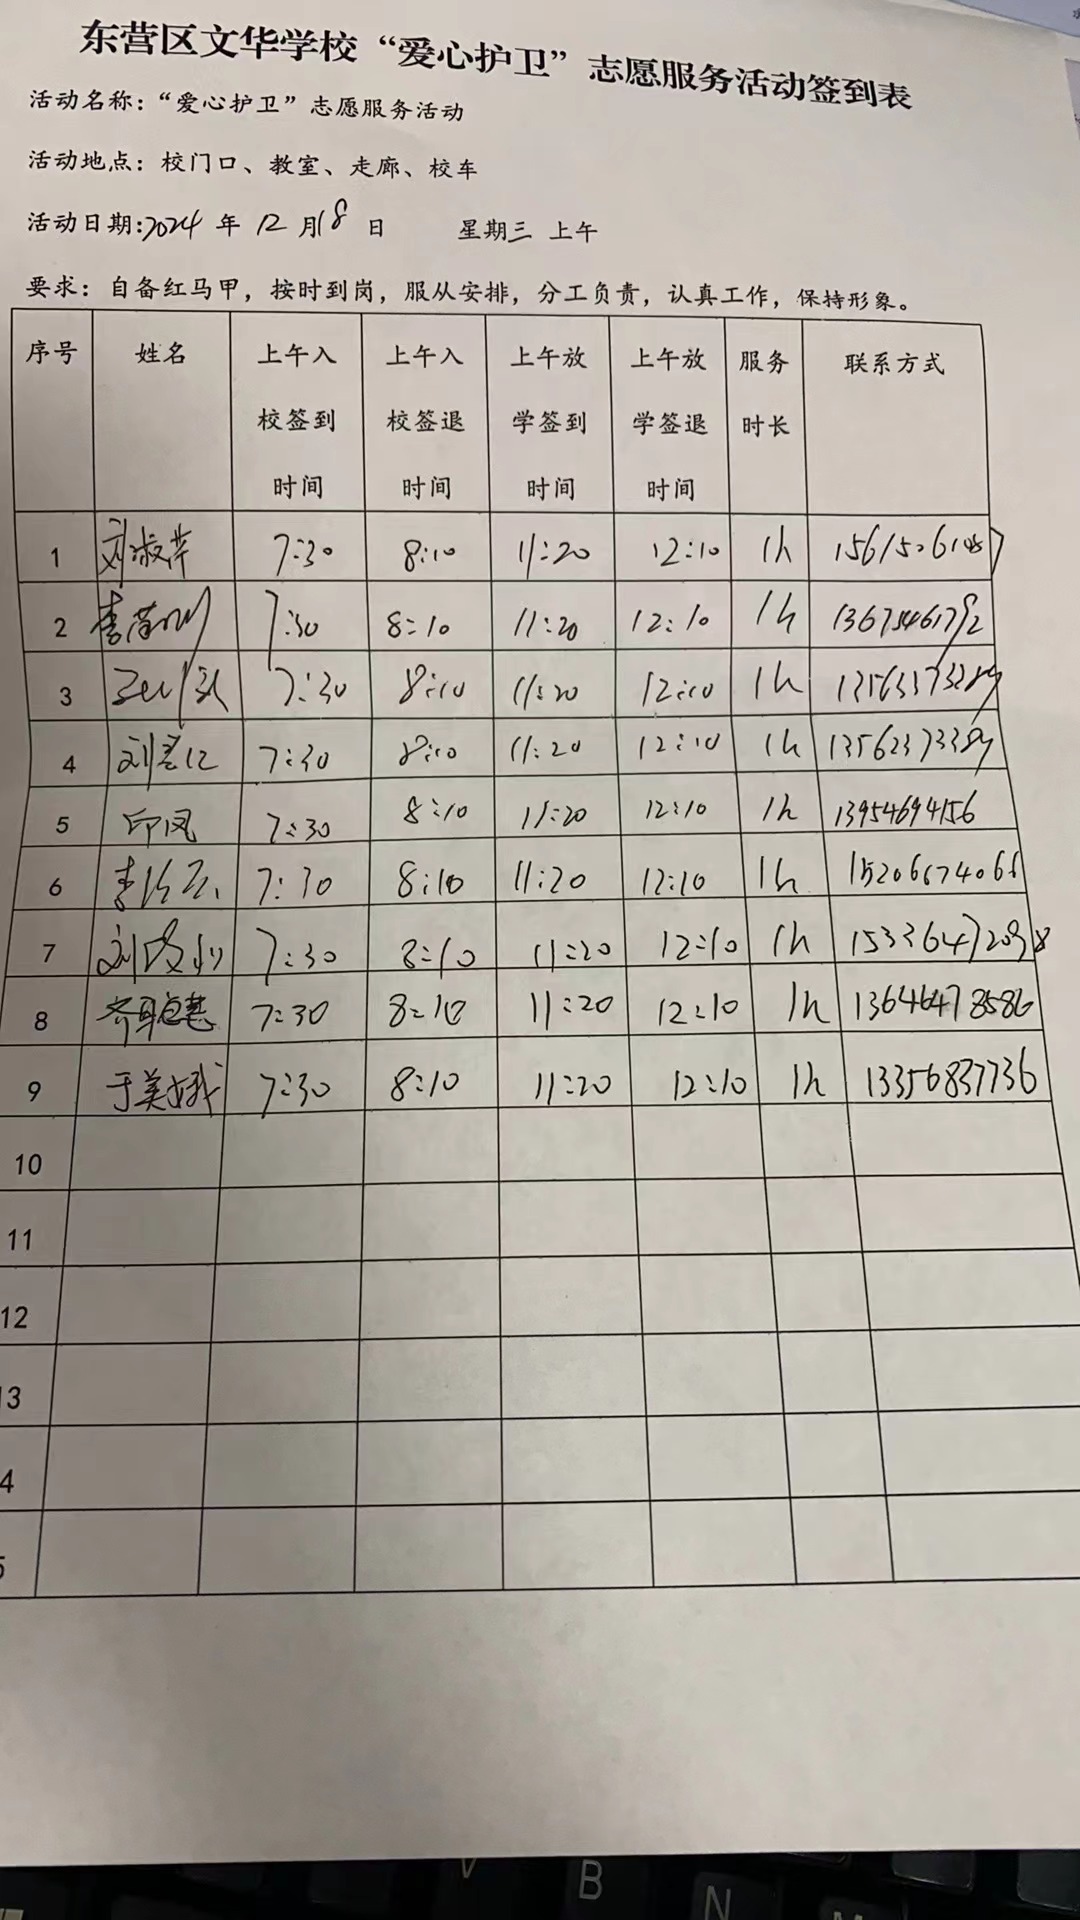 东营区文华学校“爱心护卫”志愿服务活动签到表
活动名称：“爱心护卫”志愿服务活动
活动地点：校门口、教室、走廊、校车
活动日期:2024 年 12 月18 日 星期三 上午
要求：自备红马甲，按时到岗，服从安排，分工负责，认真工作，保持形象。
序号 姓名 上午入校签到时间 上午入校签退时间 上午放学签到时间 上午放学签退时间 服务时长 联系方式
1 刘淑芹 7:30 8:10 11:20 12:10 1h
2 7:30 8:10 11:20 12:10 1h
3 7:30 8:10 11:20 12:10 1h
4 7:30 8:10 11:20 12:10 1h
5 印凤 7:30 8:10 11:20 12:10 1h 13954694156
6 7:30 8:10 11:20 12:10 1h
7 7:30 8:10 11:20 12:10 1h
8 7:30 8:10 11:20 12:10 1h 13646478586
9 于美娥 7:30 8:10 11:20 12:10 1h 13356837736
10
11
12
13
4
5
V B N M